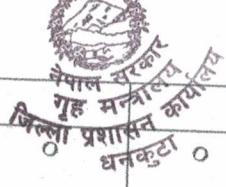 नेपाल सरकार
गृह मन्त्रालय
जिल्ला प्रशासन कार्यालय
धनकुटा